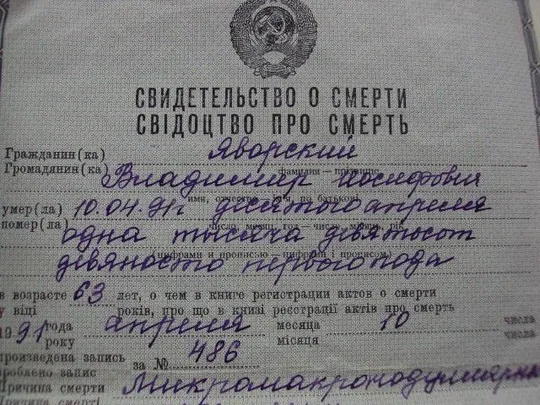 СВИДЕТЕЛЬСТВО О СМЕРТИ
СВІДОЦТВО ПРО СМЕРТЬ
Гражданин(ка) Яворский
Громадянин(ка) фамилия — прізвище
Владимир Иосифович
имя, отчество — ім'я, по батькові
умер(ла) 10.04.91г десятого апреля
помер(ла) число, месяц, год — число, місяць, рік
одна тысяча девятьсот
(цифрами и прописью — цифрами і прописом)
девяносто первого года
в возрасте 63 лет, о чем в книге регистрации актов о смерти
у віці років, про що в книзі реєстрації актів про смерть
1991 года апреля месяца 10 числа
року місяця числа
произведена запись за № 486
зроблено запис
Причина смерти Микромакронодулярна
Причина смерті